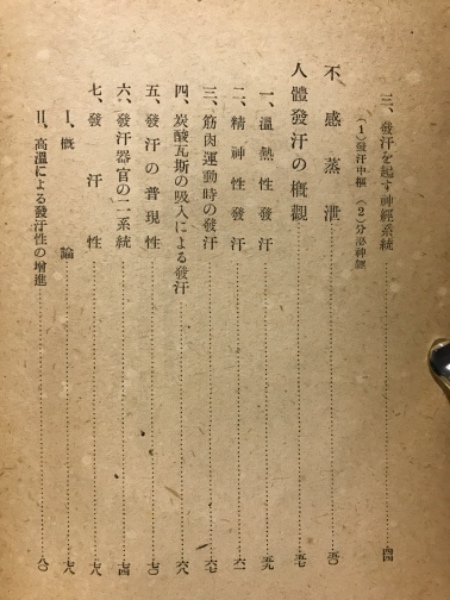 三、發汗を起す神經系統……四四
(1)發汗中樞 (2)分泌神經
不感蒸泄……五〇
人體發汗の概觀……五七
一、溫熱性發汗……五九
二、精神性發汗……六一
三、筋肉運動時の發汗……六七
四、炭酸瓦斯の吸入による發汗……六八
五、發汗の普現性……七〇
六、發汗器官の二系統……七四
七、發汗性……七八
I、概論……七八
II、高溫による發汗性の增進……八〇